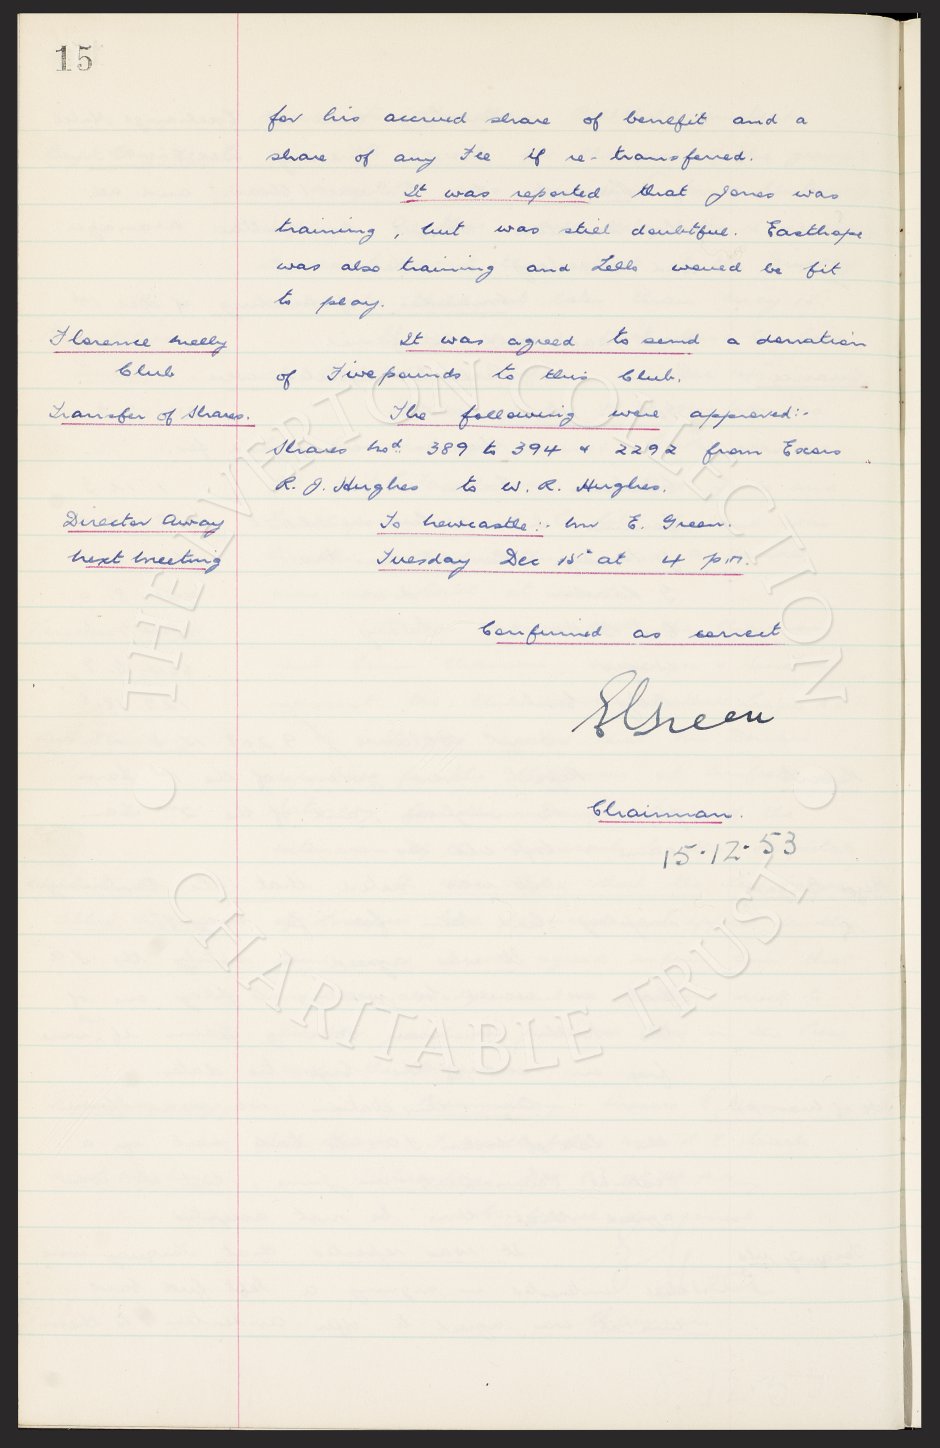 15
for his accrued share of benefit and a
share of any Fee if re-transferred.
It was reported that Jones was
training, but was still doubtful. Easthope
was also training and Lello would be fit
to play.
Florence Melly It was agreed to send a donation
Club of Five pounds to this Club.
Transfer of Shares. The following were approved:-
Shares Nos. 389 to 394 & 2292 from Exors
R. J. Hughes to W. R. Hughes.
Director Away To Newcastle:- Mr E. Green.
Next Meeting Tuesday Dec 15" at 4 p.m.
Confirmed as correct
E Green
Chairman.
15.12.53
THE EVERTON COLLECTION
CHARITABLE TRUST